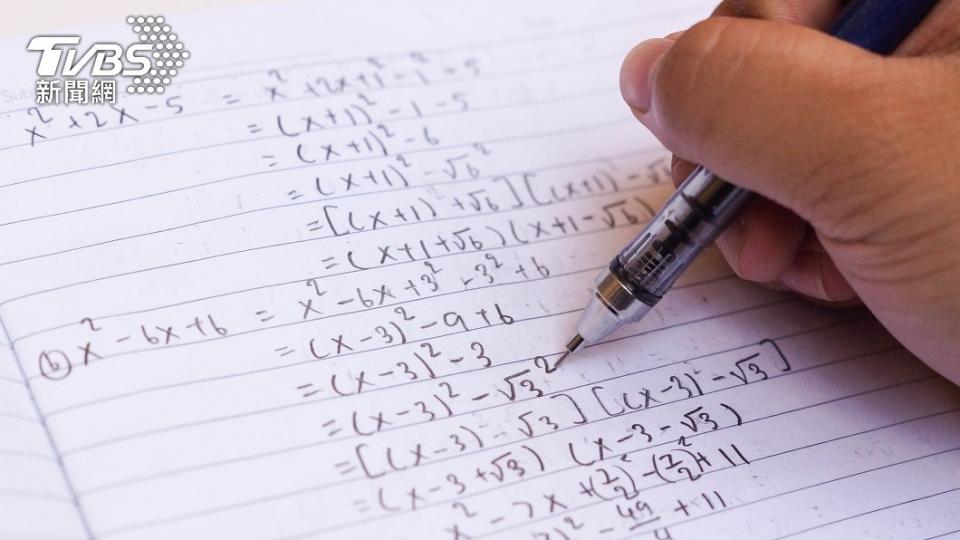 TVBS
新聞網
x² + 2x - 5 = x² + 2x + 1² - 1² - 5
= (x+1)² - 1 - 5
= (x+1)² - 6
= (x+1)² - √6²
= [(x+1) + √6] [(x+1) - √6
= (x+1+√6) (x+1-√6)
(b) x² - 6x + 6 = x² - 6x + 3² - 3² + 6
= (x-3)² - 9 + 6
= (x-3)² - 3
= (x-3)² - √3²
= [(x-3) - √3] [(x-3) - √3]
= (x-3+√3) (x-3-√3)
x² - 7x + (7/2)² - (7/2)² + 11
)² - 49/4 + 11